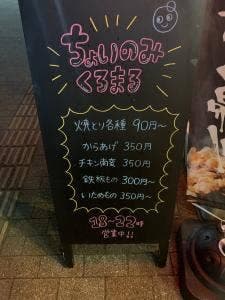 ちょいのみ
くろまる
焼とり各種 90円〜
からあげ 350円
チキン南蛮 350円
鉄板もの 300円〜
いためもの 350円〜
18〜22時
営業中!!